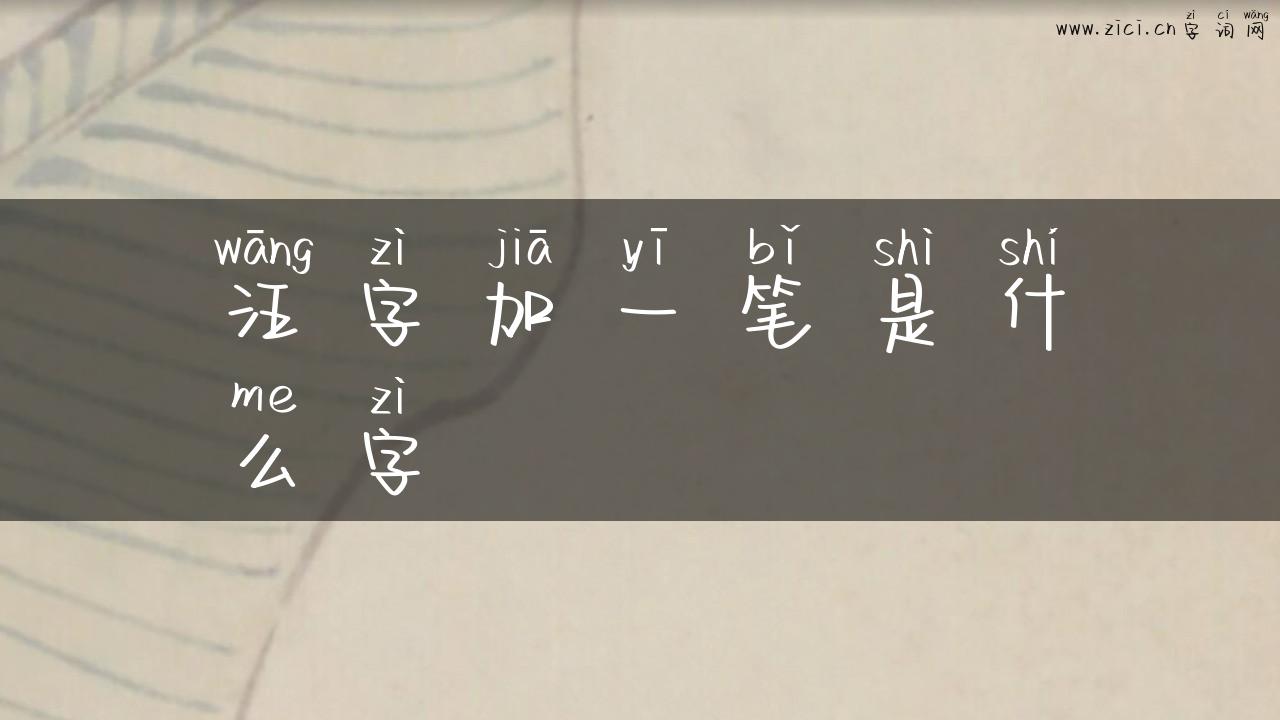 zì cí wǎng
www.zici.cn字词网
wāng zì jiā yī bǐ shì shí
汪字加一笔是什
me zì
么字